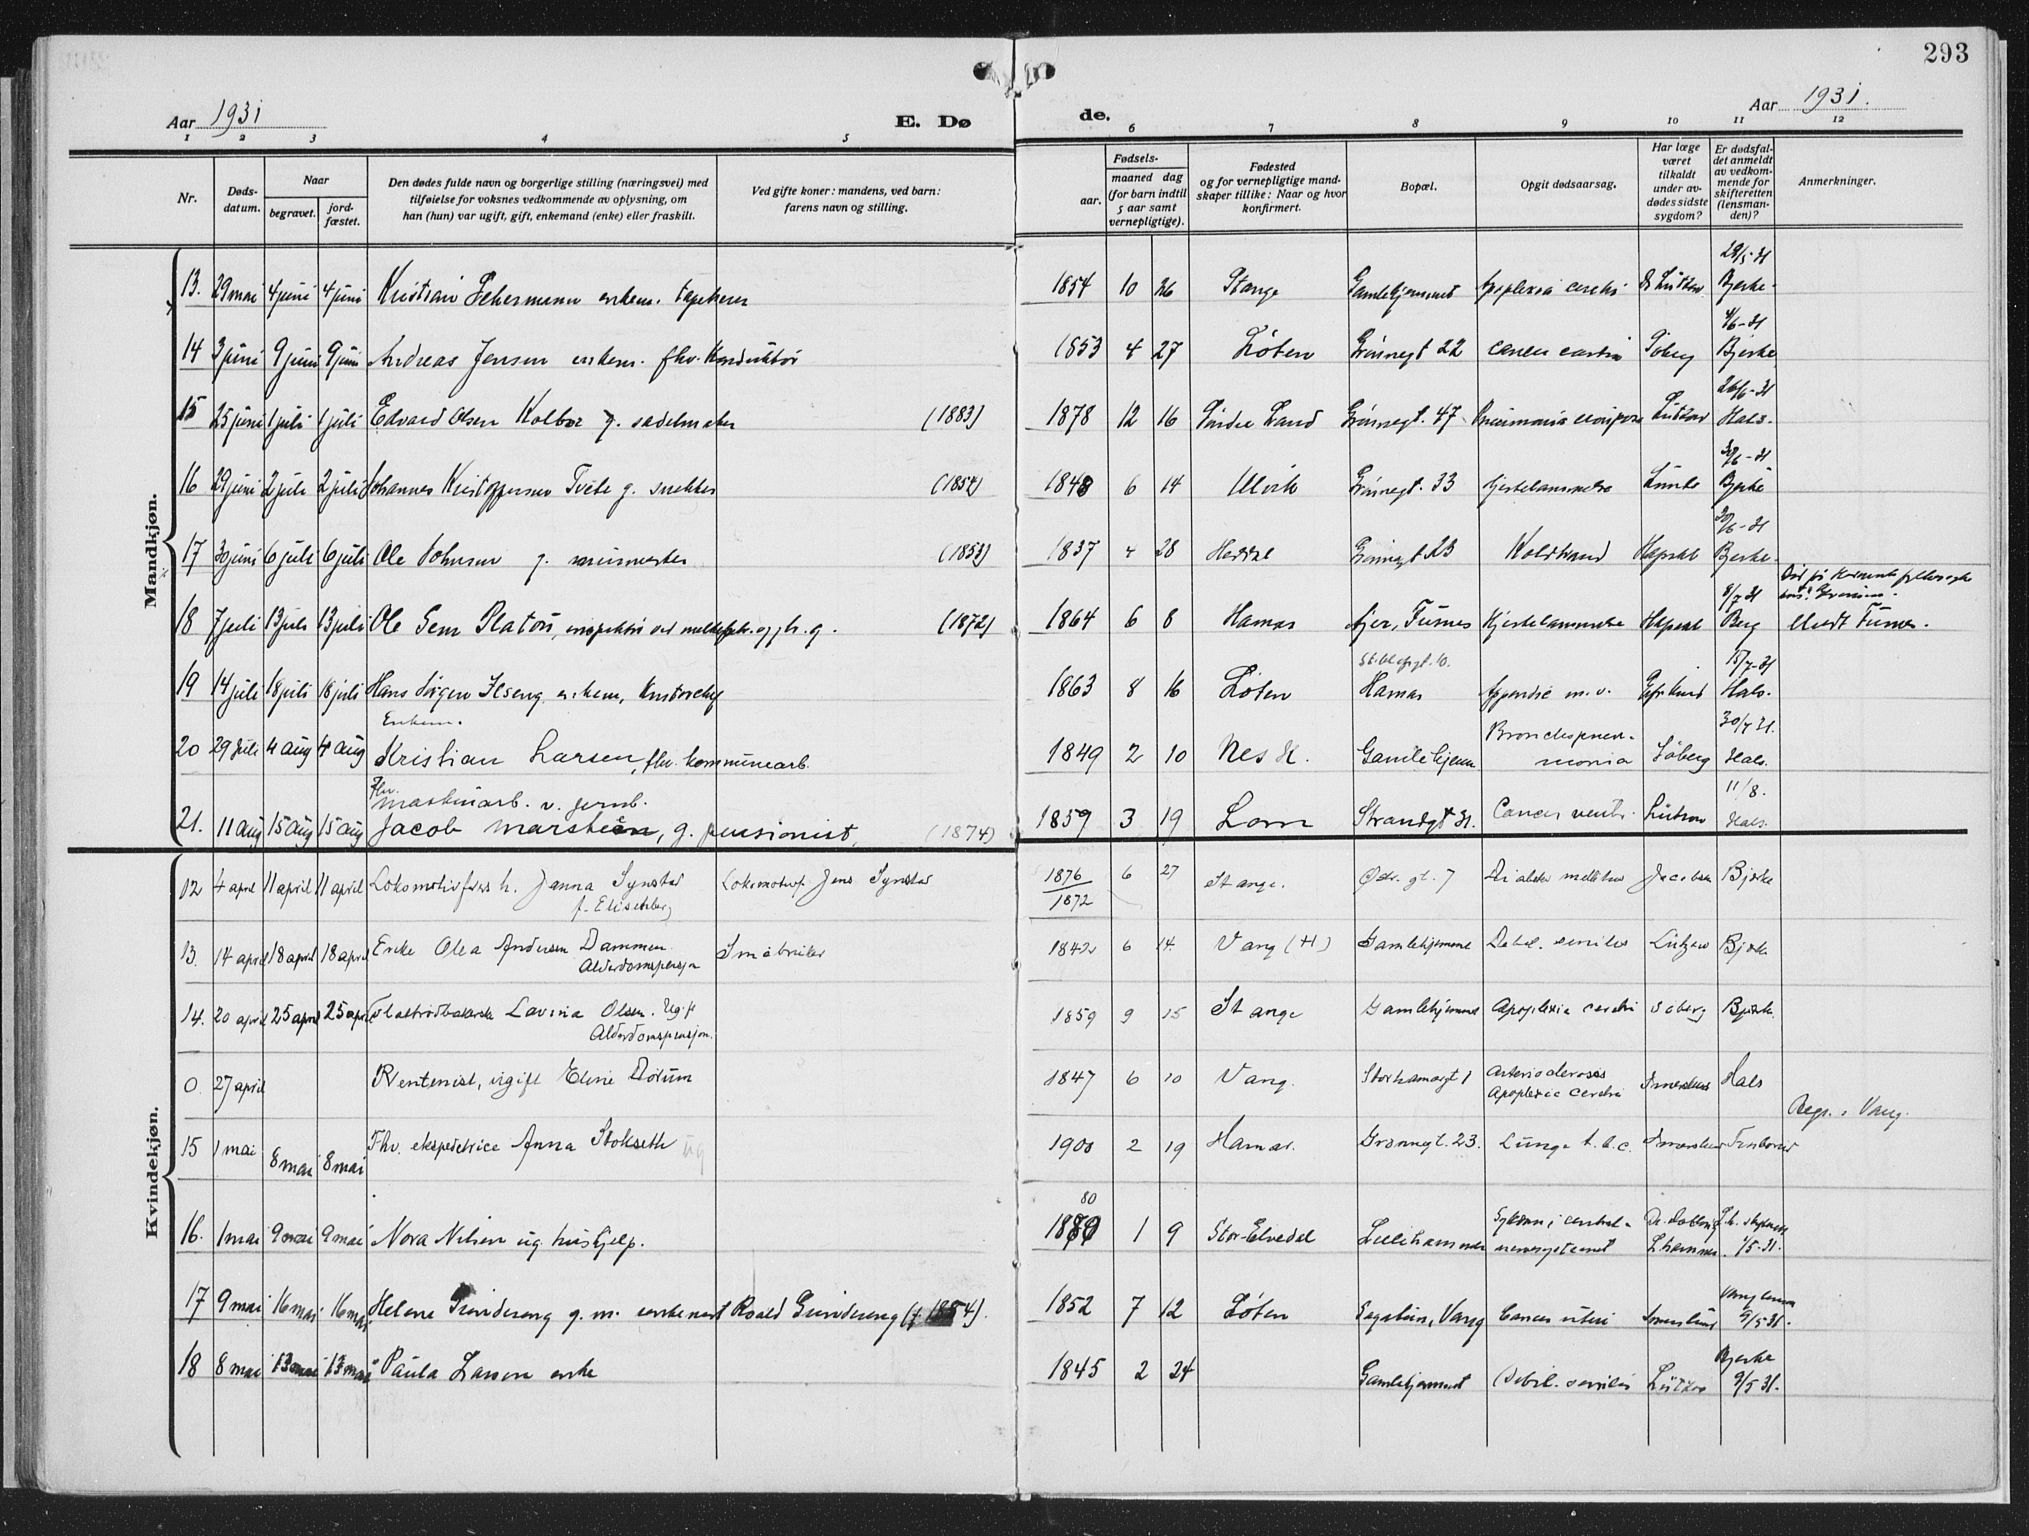 293
Aar 1931
E. Dø
de.
Aar 1931.
1 2 3 4 5 6 7 8 9 10 11 12
Nr.
Døds-
datum.
Naar
begravet.
jord-
fæstet.
Den dødes fulde navn og borgerlige stilling (næringsvei) med
tilføielse for voksnes vedkommende av oplysning, om
han (hun) var ugift, gift, enkemand (enke) eller fraskilt.
Ved gifte koner: mandens, ved barn:
farens navn og stilling.
Fødsels-
aar.
maaned dag
(for barn indtil
5 aar samt
vernepligtige).
Fødested
og for vernepligtige mand-
skaper tillike: Naar og hvor
konfirmert.
Bopæl.
Opgit dødsaarsag.
Har læge
været
tilkaldt
under av-
dødes sidste
sygdom?
Er dødsfal-
det anmeldt
av vedkom-
mende for
skifteretten
(lensman-
den)?
Anmerkninger.
Mandkjøn.
29/5-31
13. 29 mai 4 juni 4 juni Kristian enkem. tapetserer 1854 10 26 Stange Gamlehjemmet Apoplexia cerebri Dr Lützow Bjerke.
4/6-31
14 3 juni 9 juni 9 juni Andreas Jensen enkem. fhv. Konduktør 1853 4 27 Løten Grønnegt 22 cancer Søberg Bjerke
26/6-31
15 25 juni 1 juli 1 juli Edvard Olsen Kolboe g. sadelmaker (1883) 1878 12 16 Søndre Land Grønnegt. 47 Lützow Hals.
30/6-31
16 29 juni 2 juli 2 juli Johannes Kristoffersen Tveite g. snekker (1854) 1848 6 14 Ulvik Grønnegt. 33 hjertelammelse Lunde Bjerke
30/6-31
17 30 juni 6 juli 6 juli Ole Johnsen g. murmester (1853) 1837 4 28 Grønnegt 23 Koldbrand Bjerke.
8/7 31
18 7 juli 13 juli 13 juli Ole Sem Platou, inspektør ved g. (1872) 1864 6 8 Hamar Ajer, Furnes Hjertelammelse Berg Furnes.
St. Olafsgt. 10. 15/7-31
19 14 juli 18 juli 18 juli Hans Jørgen Ilseng enkem, 1863 8 16 Løten Hamar Appendic m. v. Hals.
Enkem. Bronchopneu- 30/7 31.
20 29 juli 4 aug 4 aug Kristian Larsen, fhv. kommunearb. 1849 2 10 Nes H. Gamlehjem monia Søberg Hals.
Fhv.
maskinarb. v. jernb. 11/8.
21. 11 aug 15 aug 15 aug Jacob Marsteen, g. pensionist, (1874) 1859 3 19 Lom Strandgt 31. Cancer ventr. Lützow Hals.
Kvindekjøn.
12 4 april 11 april 11 april Lokomotivførers h. Janna Synstad Lokomotivf. Jens Synstad 1876 6 27 Stange. Østr. gt. 7 Diabetes mellitus Jacobsen Bjerke
1872
13. 14 april 18 april 18 april Enke Olea Andersen Dammen. Småbruker 1842 6 14. Vang (H) Gamlehjemmet Debil. senilis Lützow Bjerke
Alderdomspensjon
14. 20 april 25 april 25 april Flatbrødbakerske Lavina Olsen. Ugift 1859 9 15 Stange Gamlehjemmet Apoplexia cerebri Søberg Bjerke.
Alderdomspensjon.
0 27 april Rentenist, ugift Eline Dørum 1847 6 10 Vang. Storhamargt 1 Arteriosclerosis Hals
Apoplexia cerebri
Regr. i Vang.
15 1 mai 8 mai 8 mai Fhv. ekspeditrice Anna Stokseth ug 1900 2 19 Hamar. Grønnegt. 23. Lunge t. b. c.
80
16. 1 mai 9 mai 9 mai Nora Nilsen ug. hushjelp. 1 9 Stor-Elvedal Lillehammer Sykdom i central- Dr.
nervesystemet L.hammer. 1/5-31.
17 9 mai 16 mai 16 mai Helene Grindereng g. m. Roald Grindereng (f 1854). 1852 7 12 Løten Vang Cancer uteri 9/5 31.
18 8 mai 13 mai 13 mai Paula Larsen enke 1845 2 24 Gamlehjemmet Debil. senilis Lützow Bjerke
9/5 31.